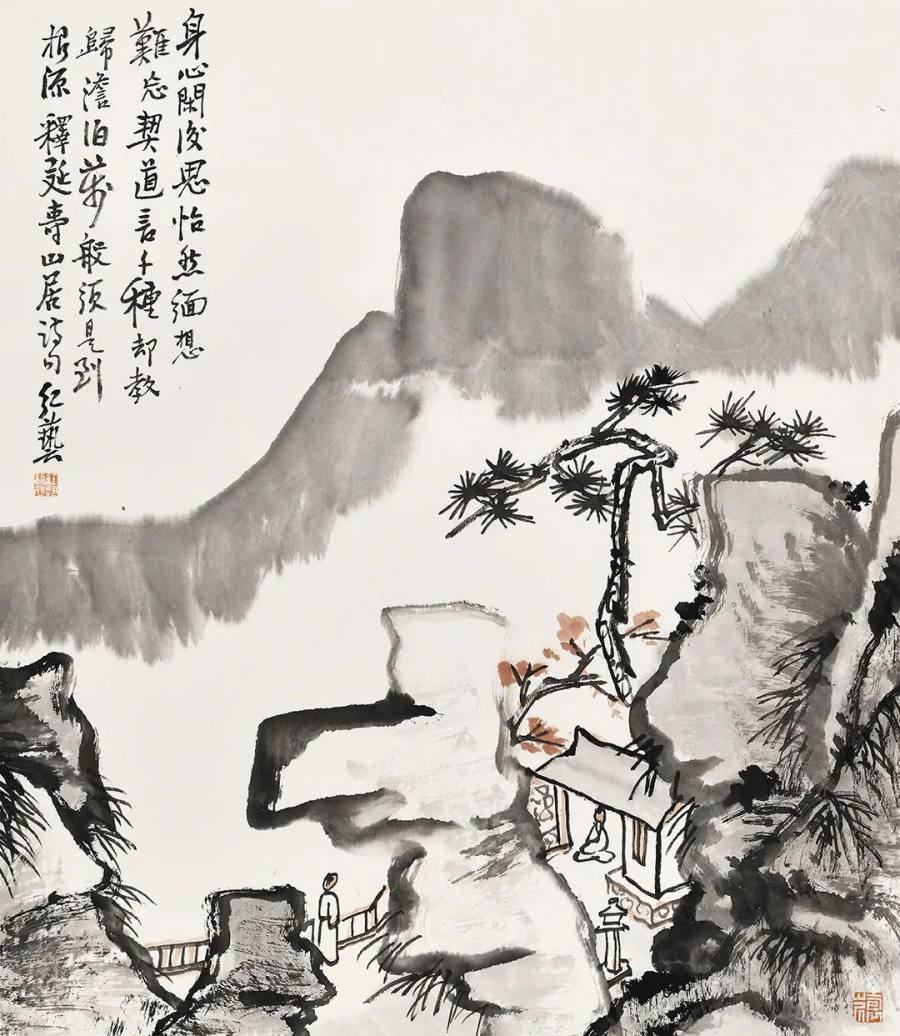 身心閑後思怡然緬想
難忘契道言千種却教
歸澹泊萬般須是到
根源 釋延壽山居詩句 紅藝